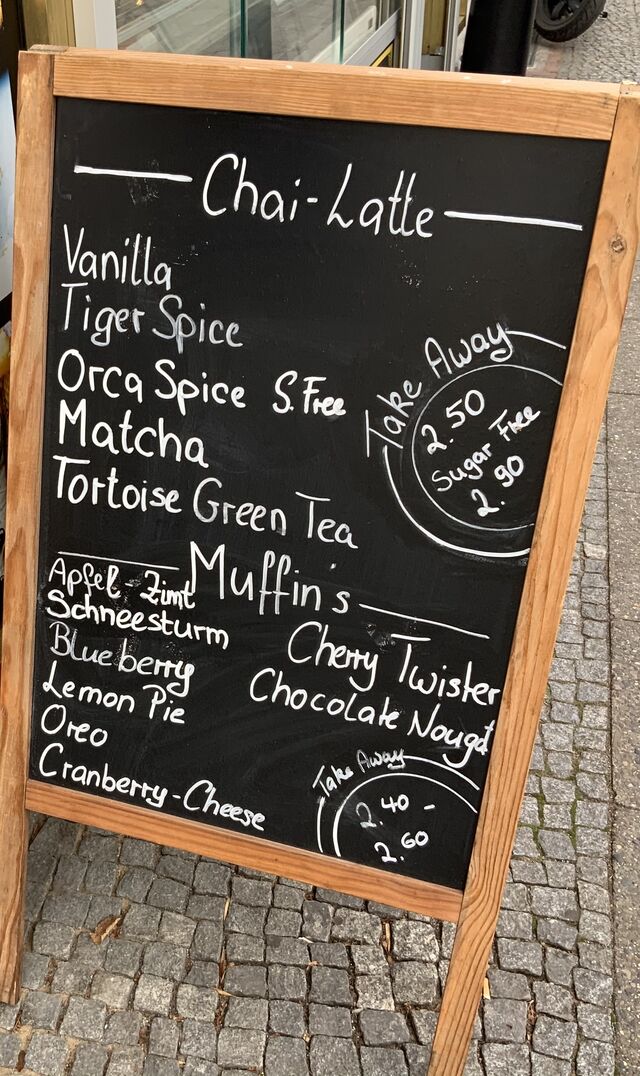 Chai-Latte
Vanilla
Tiger Spice
Orca Spice S. Free
Matcha
Tortoise Green Tea
Take Away
2.50
Sugar Free
2.90
Muffin's
Apfel-Zimt
Schneesturm
Blueberry
Lemon Pie
Oreo
Cranberry-Cheese
Cherry Twister
Chocolate Nougat
Take Away
2.40 -
2.60